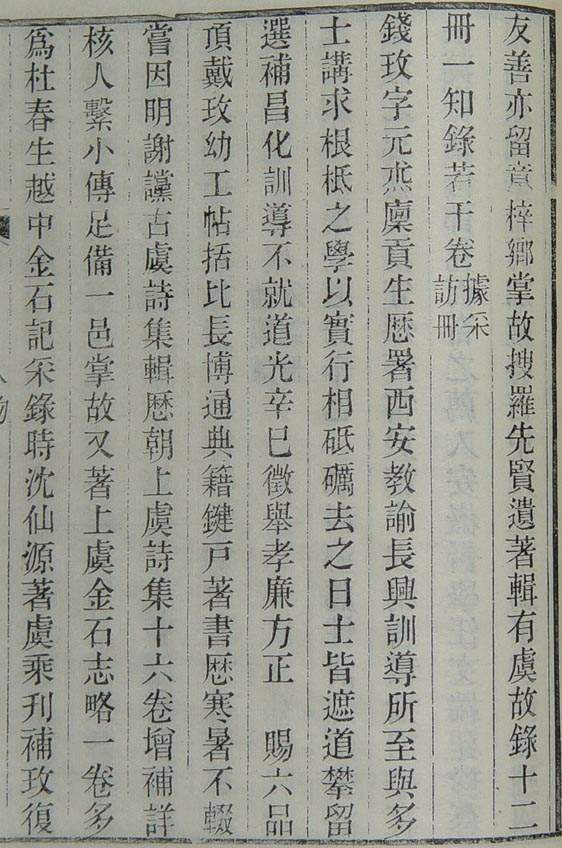 友善亦留意梓鄉掌故搜羅先賢遺著輯有虞故錄十二
冊一知錄若干卷據采訪冊
錢玫字元炁廩貢生歷署西安教諭長興訓導所至與多
士講求根柢之學以實行相砥礪去之日士皆遮道攀留
選補昌化訓導不就道光辛巳徵舉孝廉方正 賜六品
頂戴玫幼工帖括比長博通典籍鍵戶著書歷寒暑不輟
嘗因明謝讜古虞詩集輯歷朝上虞詩集十六卷增補詳
核人繫小傳足備一邑掌故又著上虞金石志略一卷多
爲杜春生越中金石記采錄時沈仙源著虞乘刊補玫復
人物